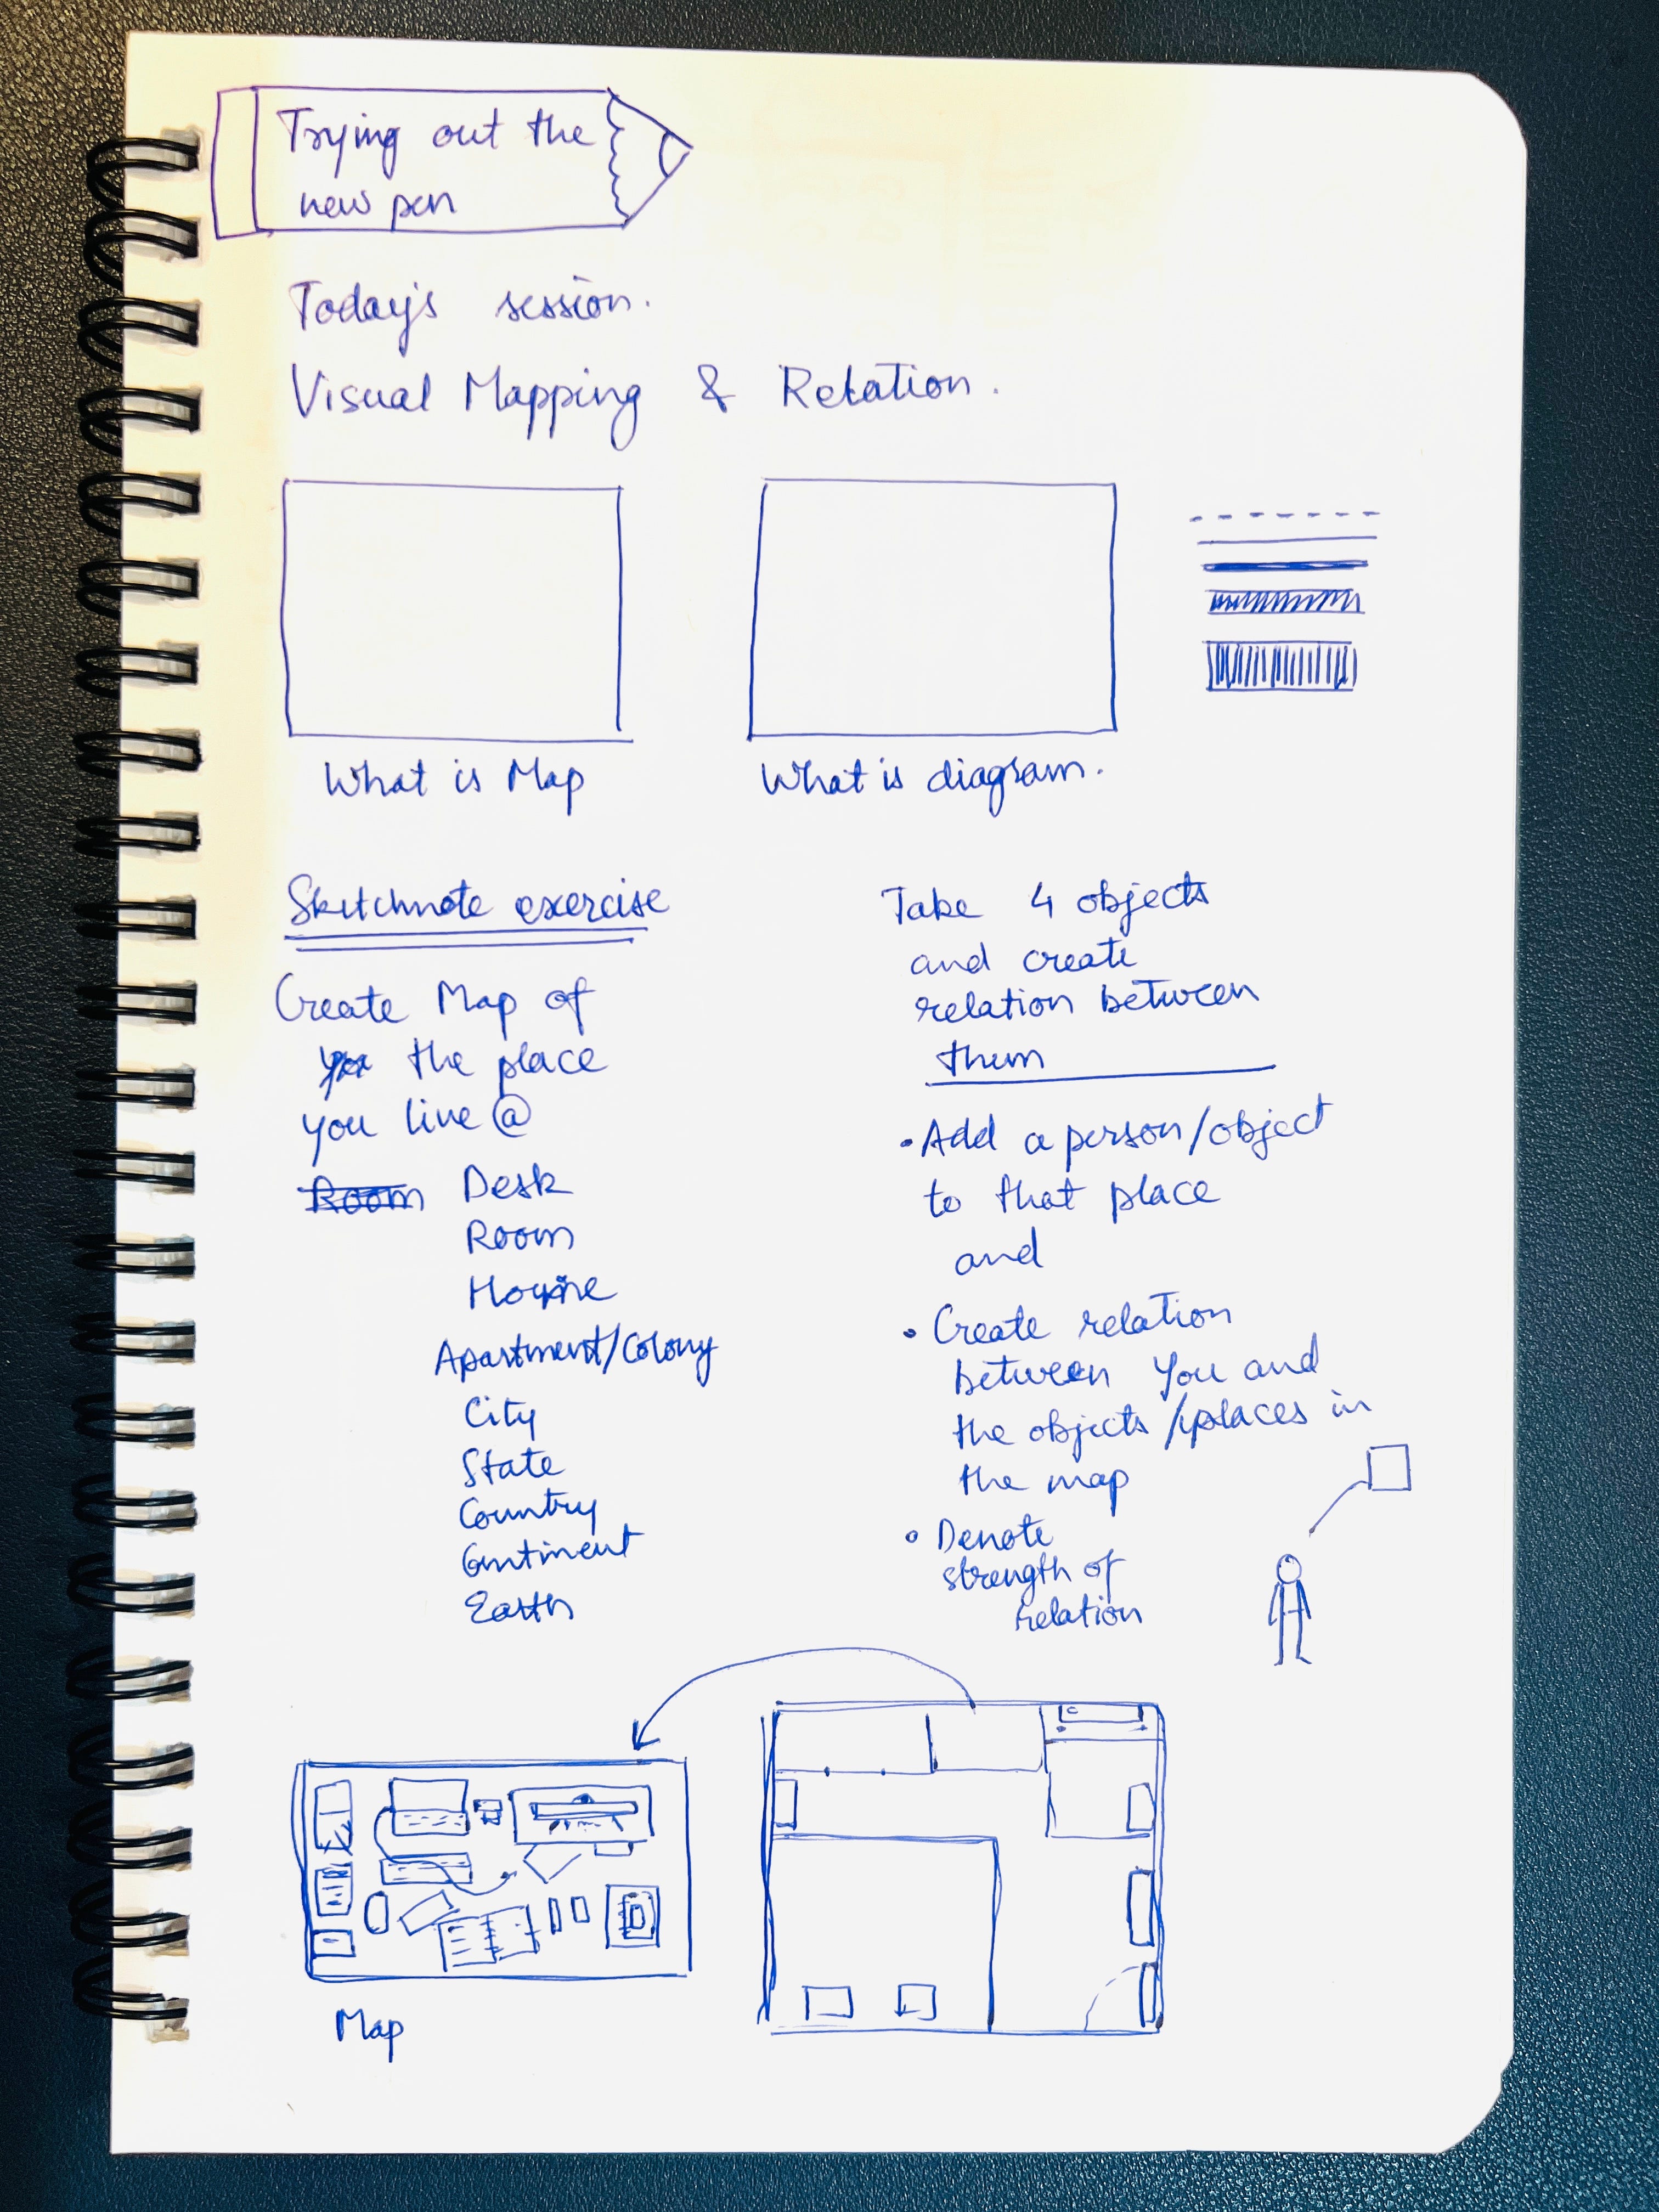 Trying out the
new pen
Today's session.
Visual Mapping & Relation.
What is Map
What is diagram.
Sketchnote exercise
Create Map of
the place
you live @
Room Desk
Room
Home
Apartment/Colony
City
State
Country
Continent
Earth
Take 4 objects
and create
relation between
them
• Add a person/object
to that place
and
• Create relation
between You and
the objects/places in
the map
• Denote
strength of
relation
Map